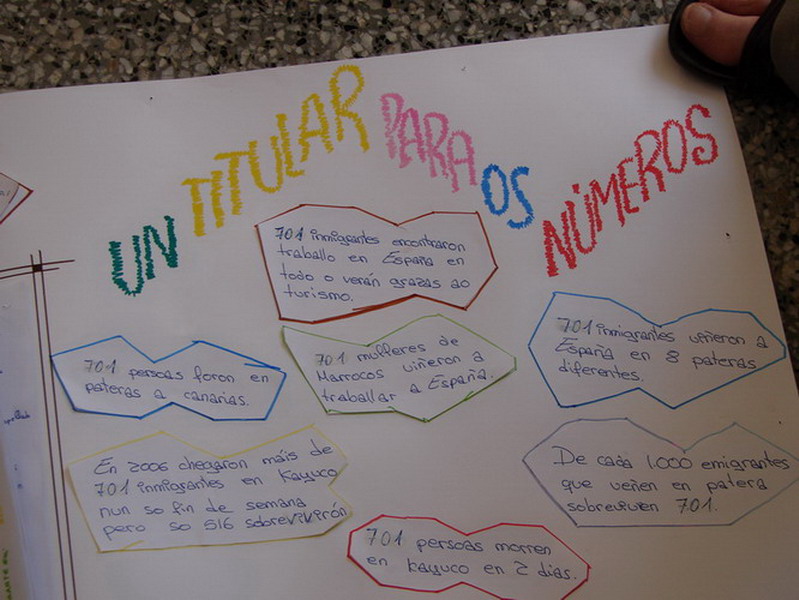 UN TITULAR PARA OS NÚMEROS
701 inmigrantes encontraron
traballo en España en
todo o verán grazas ao
turismo.
701 persoas foron en
pateras a canarias.
701 mulleres de
Marrocos viñeron a
traballar a España.
701 inmigrantes viñeron a
España en 8 pateras
diferentes.
En 2006 chegaron máis de
701 inmigrantes en Kayuco
nun so fin de semana
pero so 516 sobrevivirón
De cada 1.000 emigrantes
que veñen en patera
sobreviven 701.
701 persoas morren
en kayuco en 2 días.